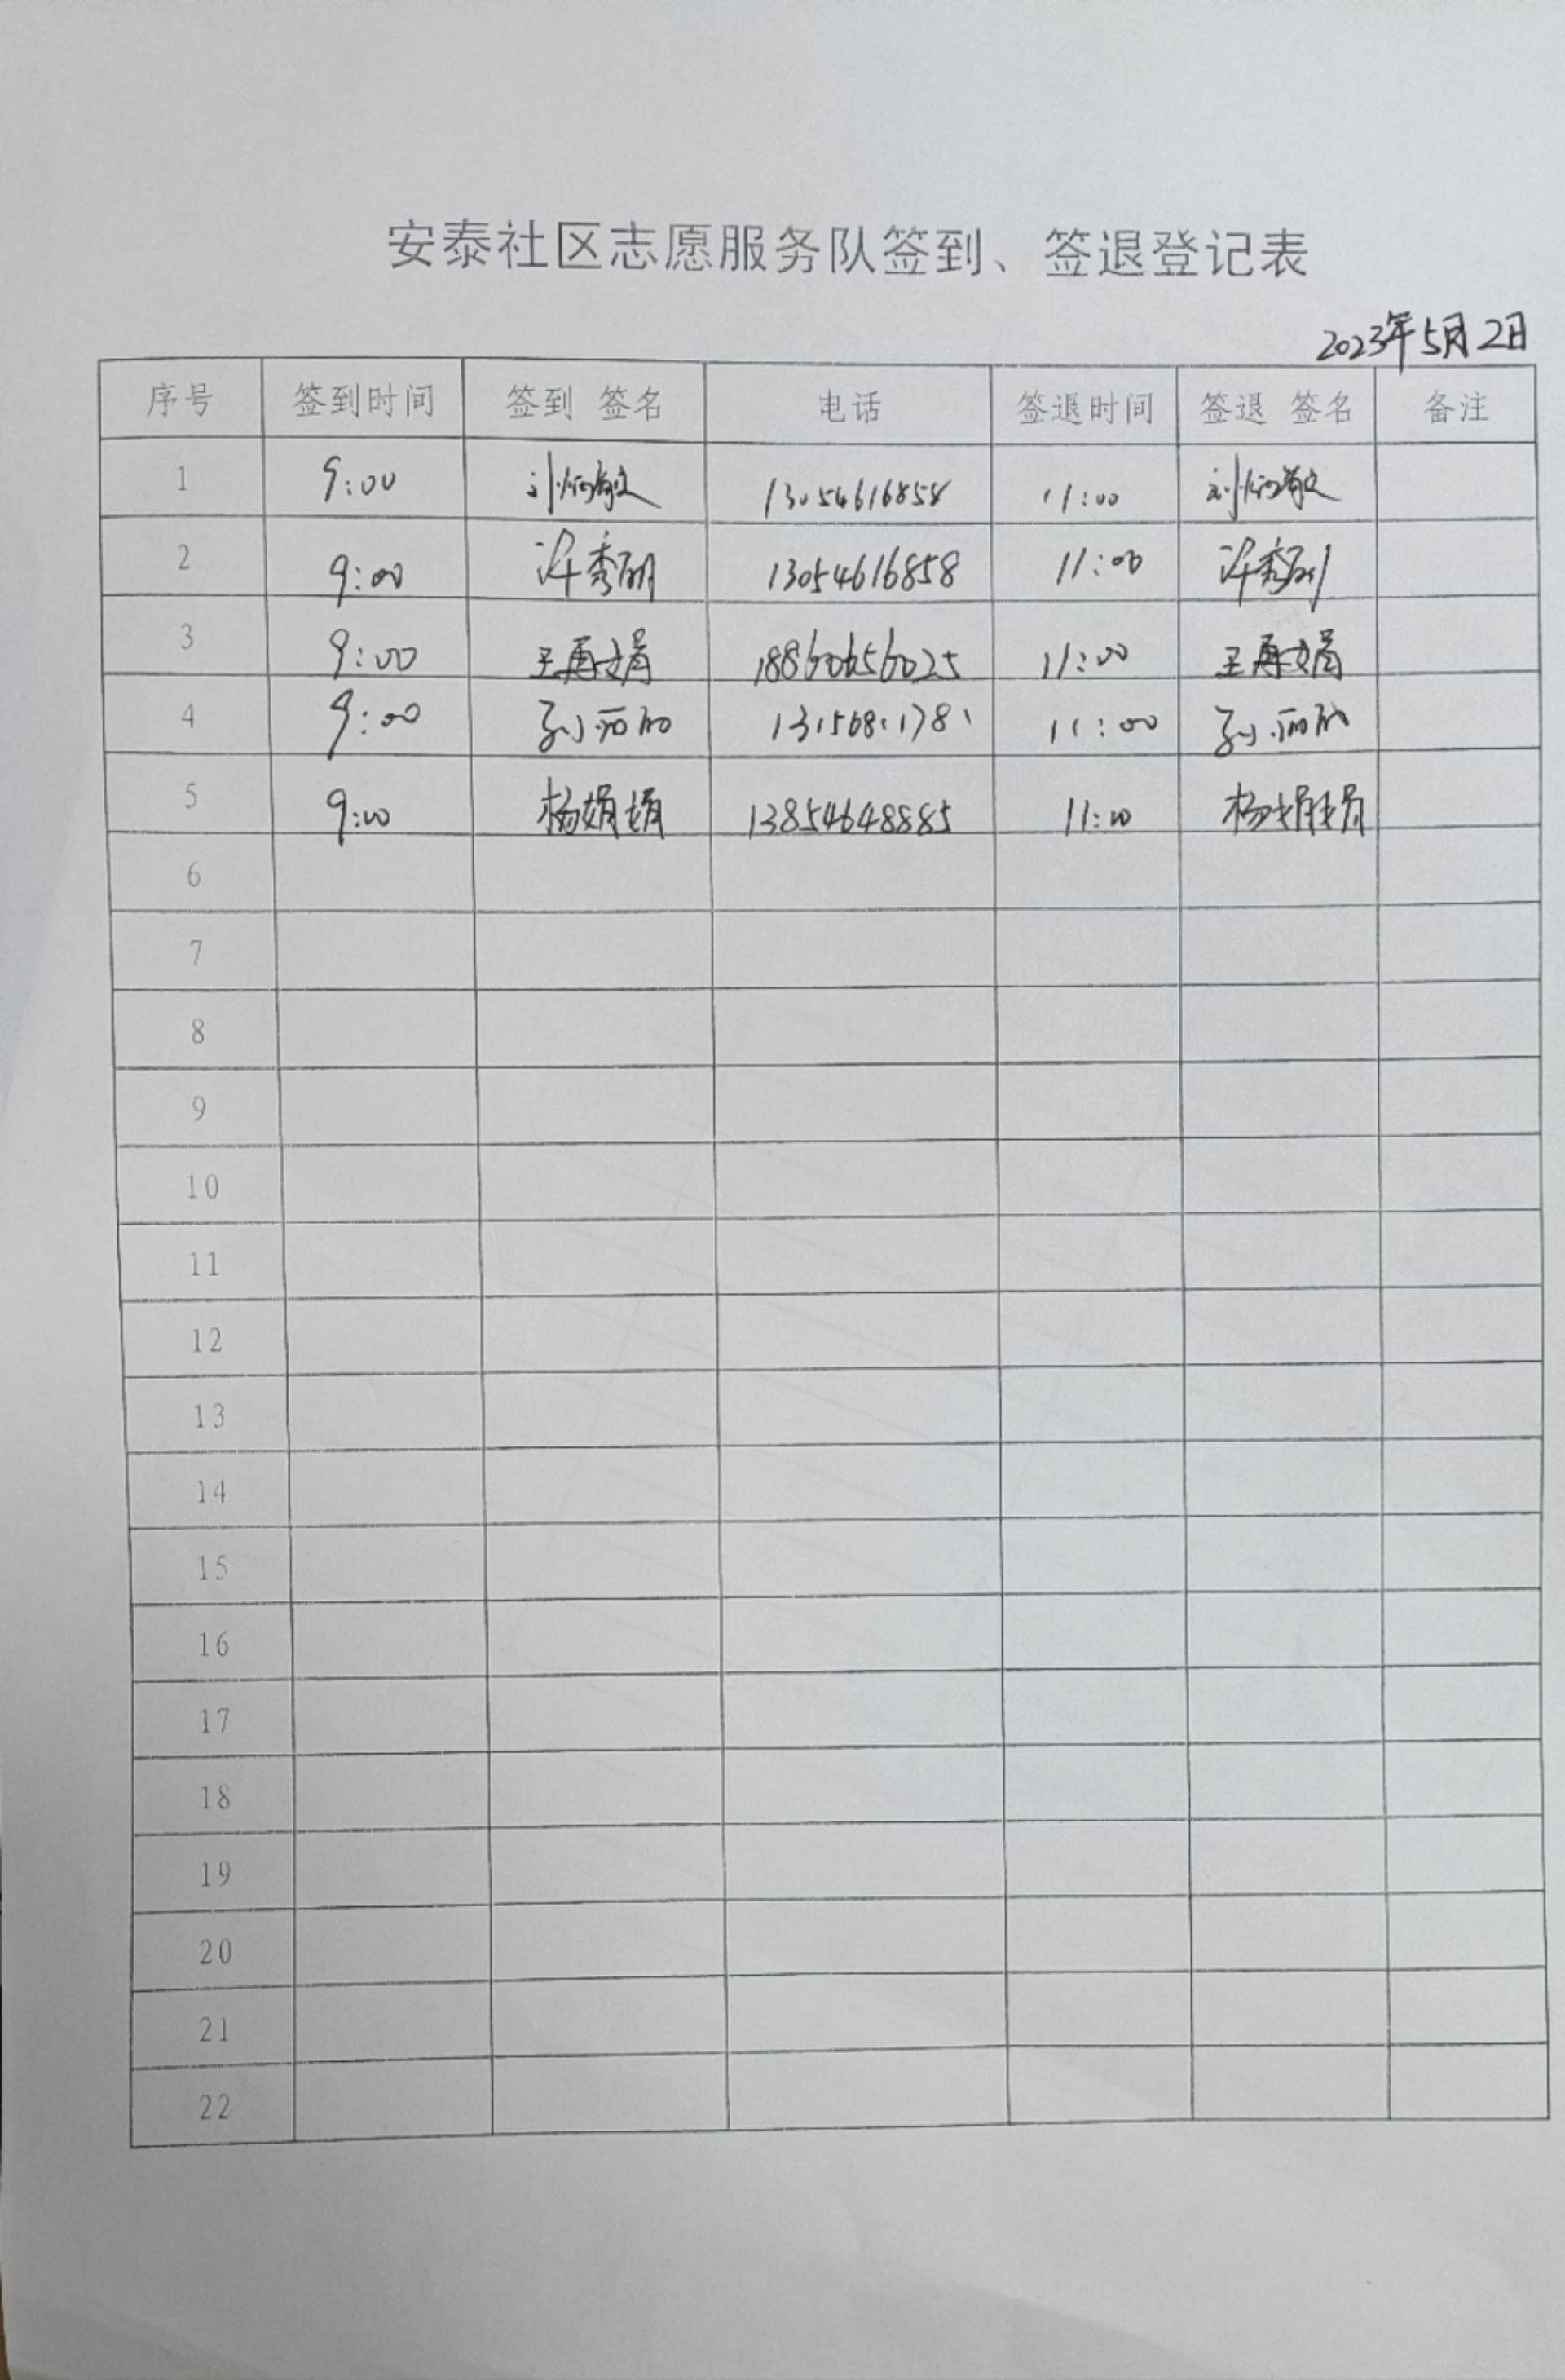 安泰社区志愿服务队签到、签退登记表
2023年5月2日
序号 签到时间 签到 签名 电话 签退时间 签退 签名 备注
1 9:00 13054616858 11:00
2 9:00 许秀丽 13054616858 11:00 许秀丽
3 9:00 王再娟 18860656025 11:00 王再娟
4 9:00 孙丽丽 13156811781 11:00 孙丽丽
5 9:00 杨娟娟 13854648885 11:00 杨娟娟
6
7
8
9
10
11
12
13
14
15
16
17
18
19
20
21
22